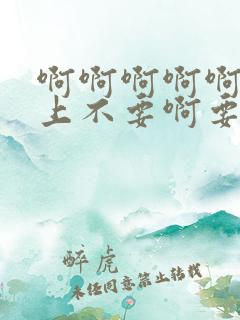 啊啊啊啊啊
上不要啊要
醉虎
未经同意禁止转载